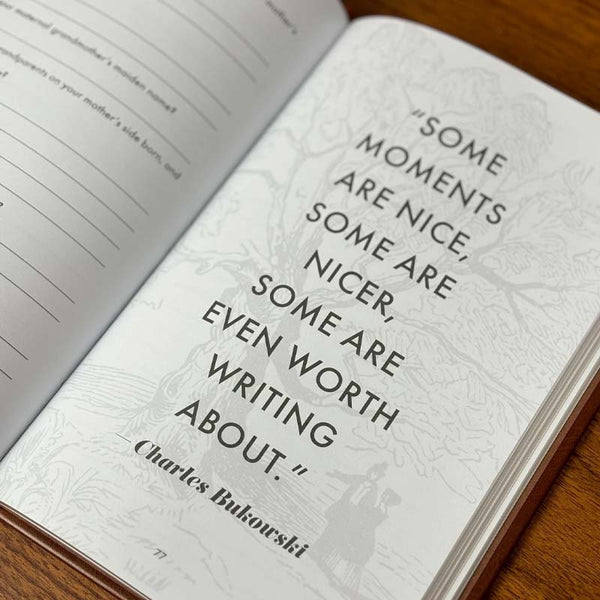 mother's
maternal grandmother's maiden name?
grandparents on your mother's side born, and
?
"SOME
MOMENTS
ARE NICE,
SOME ARE
NICER,
SOME ARE
EVEN WORTH
WRITING
ABOUT."
— Charles Bukowski
77